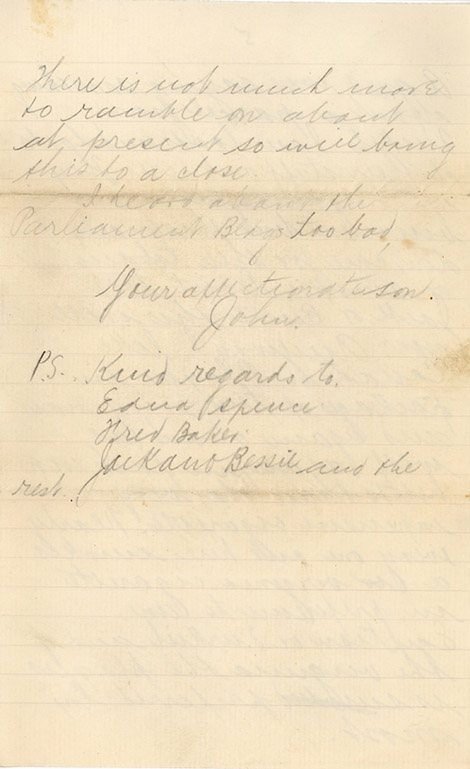 There is not much more
to ramble on about
at present so will bring
this to a close.
I heard about the
Parliament Bldgs too bad,
Your affectionate son.
John.
P.S. Kind regards to.
Edna Spence
Fred Baker.
Jack and Bessie and the
rest.